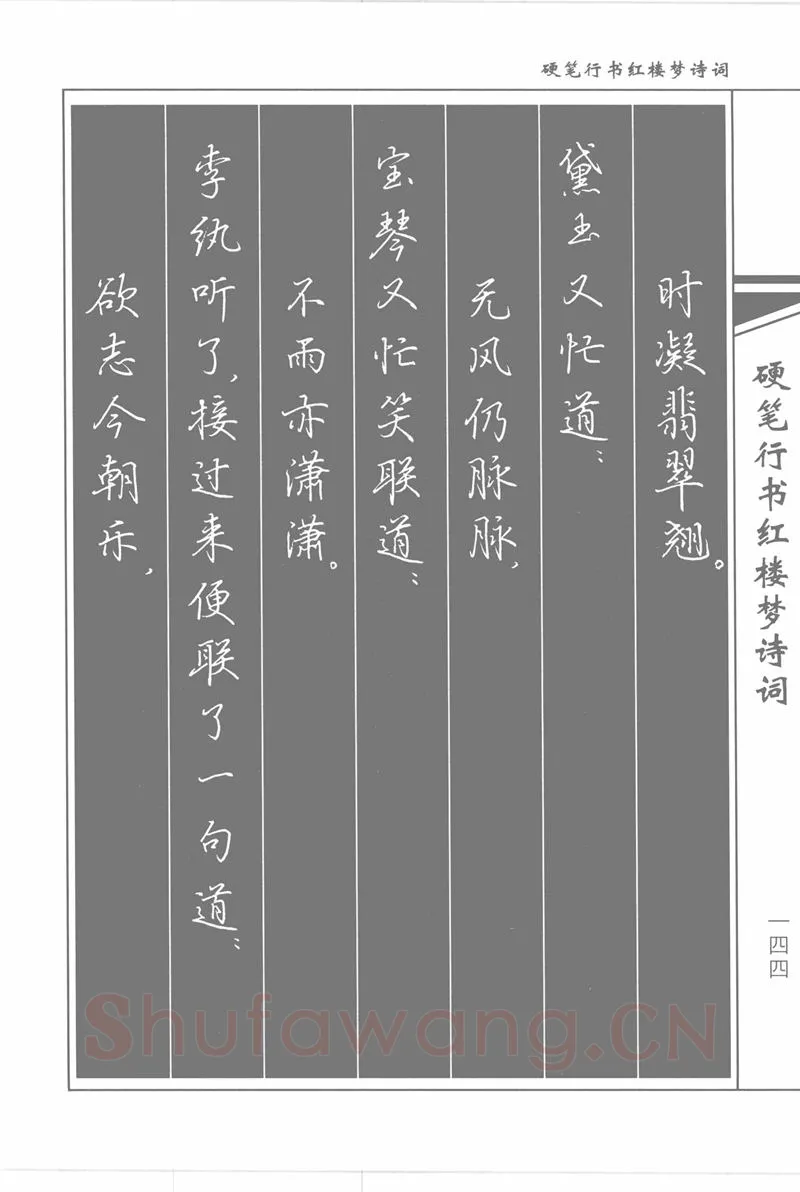 硬笔行书红楼梦诗词
时凝翡翠翘。
黛玉又忙道：
无风仍脉脉，
宝琴又忙笑联道：
不雨亦潇潇。
李纨听了，接过来便联了一句道：
欲志今朝乐，
硬笔行书红楼梦诗词
一四四
Shufawang.CN